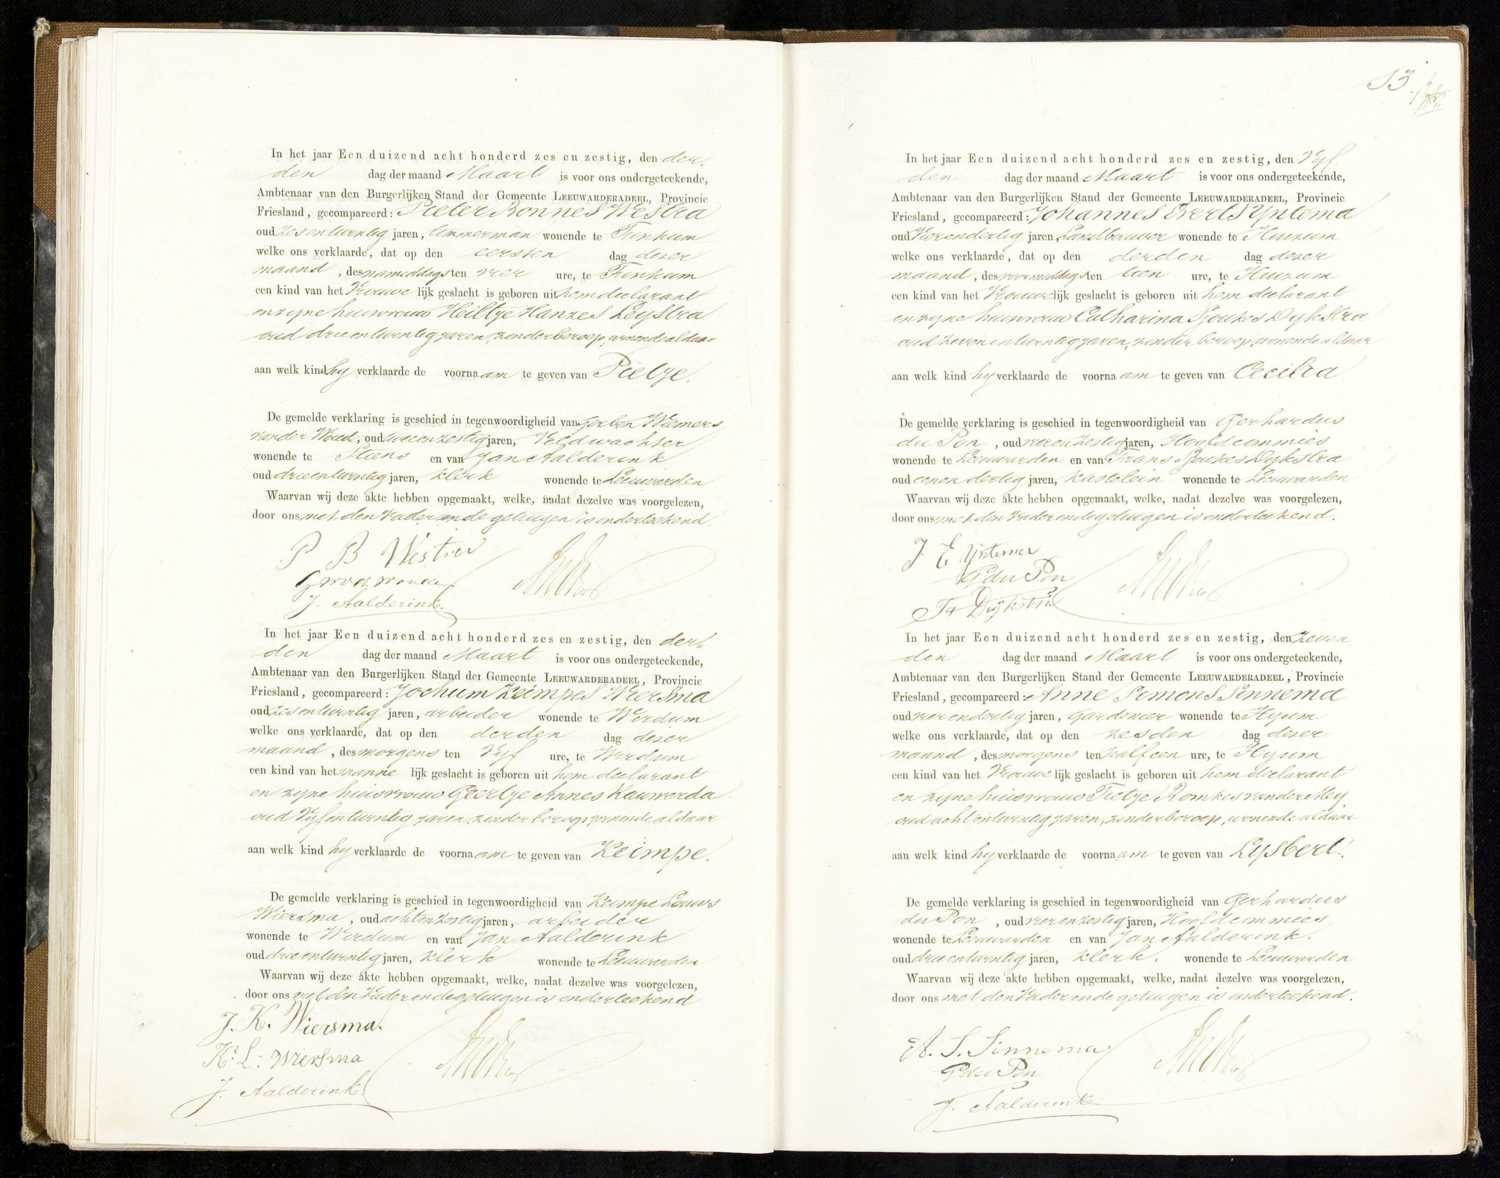 In het jaar Een duizend acht honderd zes en zestig, den der-
den dag der maand Maart is voor ons ondergeteekende,
Ambtenaar van den Burgerlijken Stand der Gemeente LEEUWARDERADEEL, Provincie
Friesland, gecompareerd: Pieter Bonnes Westra
oud zesentwintig jaren, timmerman wonende te Finkum
welke ons verklaarde, dat op den eersten dag dezer
maand, des namiddags ten vier ure, te Finkum
een kind van het Vrouwelijk geslacht is geboren uit hem declarant
en zyne huisvrouw Hiltje Hanzes Leystra
oud drieentwintig jaren, zonder beroep, wonende aldaar
aan welk kind hy verklaarde de voornaam te geven van Pietje.
De gemelde verklaring is geschied in tegenwoordigheid van Gerben Wiemers
van der Woud, oud tweeenzestig jaren, Veldwachter
wonende te Stiens en van Jan Aalderink
oud drieentwintig jaren, klerk wonende te Leeuwarden
Waarvan wij deze akte hebben opgemaakt, welke, nadat dezelve was voorgelezen,
door ons met den Vader en de getuigen is onderteekend
P B Westra
J. Aalderink.
In het jaar Een duizend acht honderd zes en zestig, den der-
den dag der maand Maart is voor ons ondergeteekende,
Ambtenaar van den Burgerlijken Stand der Gemeente LEEUWARDERADEEL, Provincie
Friesland, gecompareerd: Jochum Keimpes Wiersma
oud zesentwintig jaren, arbeider wonende te Wirdum
welke ons verklaarde, dat op den derden dag dezer
maand, des morgens ten Vyf ure, te Wirdum
een kind van het manne lijk geslacht is geboren uit hem declarant
en zyne huisvrouw Geertje Annes Kauwerda
oud Vyfentwintig jaren, zonder beroep, wonende aldaar
aan welk kind hy verklaarde de voornaam te geven van Keimpe.
De gemelde verklaring is geschied in tegenwoordigheid van Keimpe Louws
Wiersma, oud achtenzestig jaren, arbeider
wonende te Wirdum en van Jan Aalderink
oud drieentwintig jaren, klerk wonende te Leeuwarden
Waarvan wij deze akte hebben opgemaakt, welke, nadat dezelve was voorgelezen,
door ons met den Vader en de getuigen is onderteekend
J. K. Wiersma.
K: L: Wiersma
J. Aalderink
13.
In het jaar Een duizend acht honderd zes en zestig, den Vyf
den dag der maand Maart is voor ons ondergeteekende,
Ambtenaar van den Burgerlijken Stand der Gemeente LEEUWARDERADEEL, Provincie
Friesland, gecompareerd: Johannes Evert Yntema
oud Vierendertig jaren Landbouwer wonende te Huizum
welke ons verklaarde, dat op den derden dag dezer
maand, des voormiddags ten tien ure, te Huizum
een kind van het Vrouwelijk geslacht is geboren uit hem declarant
en zyne huisvrouw Catharina Sjoukes Dykstra
oud zevenentwintig jaren, zonder beroep, wonende aldaar
aan welk kind hy verklaarde de voornaam te geven van Cecilia
De gemelde verklaring is geschied in tegenwoordigheid van Gerhardus
du Pon, oud vierenzestig jaren, Hoofdcommies
wonende te Leeuwarden en van Frans Dykstra
oud eenendertig jaren, kastelein wonende te Leeuwarden
Waarvan wij deze akte hebben opgemaakt, welke, nadat dezelve was voorgelezen,
door ons met den Vader en de getuigen is onderteekend.
J. E. Yntema
G du Pon
Fs Dijkstra
In het jaar Een duizend acht honderd zes en zestig, den zeven
den dag der maand Maart is voor ons ondergeteekende,
Ambtenaar van den Burgerlijken Stand der Gemeente LEEUWARDERADEEL, Provincie
Friesland, gecompareerd: Anne Simons Sinnema
oud vierendertig jaren, Gardenier wonende te Hijum
welke ons verklaarde, dat op den zesden dag dezer
maand, des morgens ten half een ure, te Hijum
een kind van het Vrouwelijk geslacht is geboren uit hem declarant
en zyne huisvrouw Tietje Romkes van der Mey
oud achtentwintig jaren, zonder beroep, wonende aldaar
aan welk kind hy verklaarde de voornaam te geven van Lysbert.
De gemelde verklaring is geschied in tegenwoordigheid van Gerhardus
du Pon, oud vierenzestig jaren, Hoofdcommies
wonende te Leeuwarden en van Jan Aalderink.
oud drieentwintig jaren, klerk. wonende te Leeuwarden
Waarvan wij deze akte hebben opgemaakt, welke, nadat dezelve was voorgelezen,
door ons met den Vader en de getuigen is onderteekend.
A. S. Sinnema
G du Pon
J. Aalderink